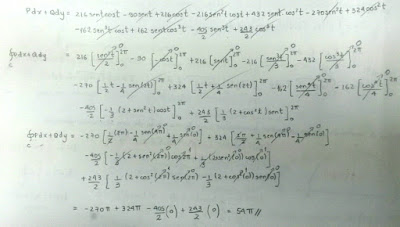 Pdx + Qdy = 216 sent cost - 90 sent + 216 cost - 216 sen²t cost + 432 sent cos²t - 270 sen²t + 324 cos²t
-162 sen³t cost + 162 sent cos³t - 405/2 sen³t + 243/2 cos³t
∮ Pdx + Qdy = 216 [sen²t/2]₀²π - 90 [-cost]₀²π + 216 [sent]₀²π - 216 [sen³t/3]₀²π - 432 [cos³t/3]₀²π
-270 [1/2 t - 1/4 sen(2t)]₀²π + 324 [1/2 t + 1/4 sen(2t)]₀²π - 162 [sen⁴t/4]₀²π - 162 [cos⁴t/4]₀²π
-405/2 [-1/3 (2 + sen²t) cost]₀²π + 243/2 [1/3 (2 + cos²t) sent]₀²π
∮ Pdx + Qdy = -270 [1/2 (2π) - 1/4 sen(4π) + 1/4 sen(0)] + 324 [2π/2 + 1/4 sen(4π) - 1/4 sen(0)]
-405/2 [-1/3 (2 + sen²(2π)) cos(2π) + 1/3 (2 + sen²(0)) cos(0)]
+ 243/2 [1/3 (2 + cos²(2π)) sen(2π) - 1/3 (2 + cos²(0)) sen(0)]
= -270π + 324π - 405/2 (0) + 243/2 (0) = 54π //